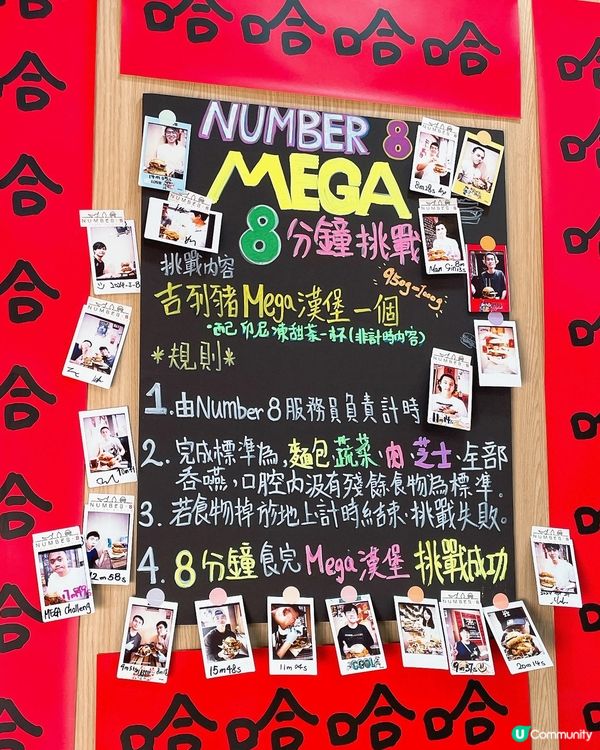 哈哈哈哈
NUMBER 8
MEGA
8分鐘挑戰
挑戰內容
950g-1200g
吉列豬Mega漢堡一個
*配印尼凍甜菜一杯(非計時內容)
*規則*
1. 由Number 8服務員負責計時
2. 完成標準為, 麵包、蔬菜、肉、芝士、全部
吞嚥, 口腔內沒有殘餘食物為標準。
3. 若食物掉於地上計時結束、挑戰失敗。
4. 8分鐘食完Mega漢堡 挑戰成功
NUMBER-8
8m18s
NUMBER-8
NUMBER-8
2024-3-8
NUMBER-8
NUMBER-8
11m14s
NUMBER-8
12m58s
NUMBER-8
MEGA Challeng
NUMBER-8
15m48s
11m04s
COOL
NUMBER-8
9m37s
20m14s
U Community